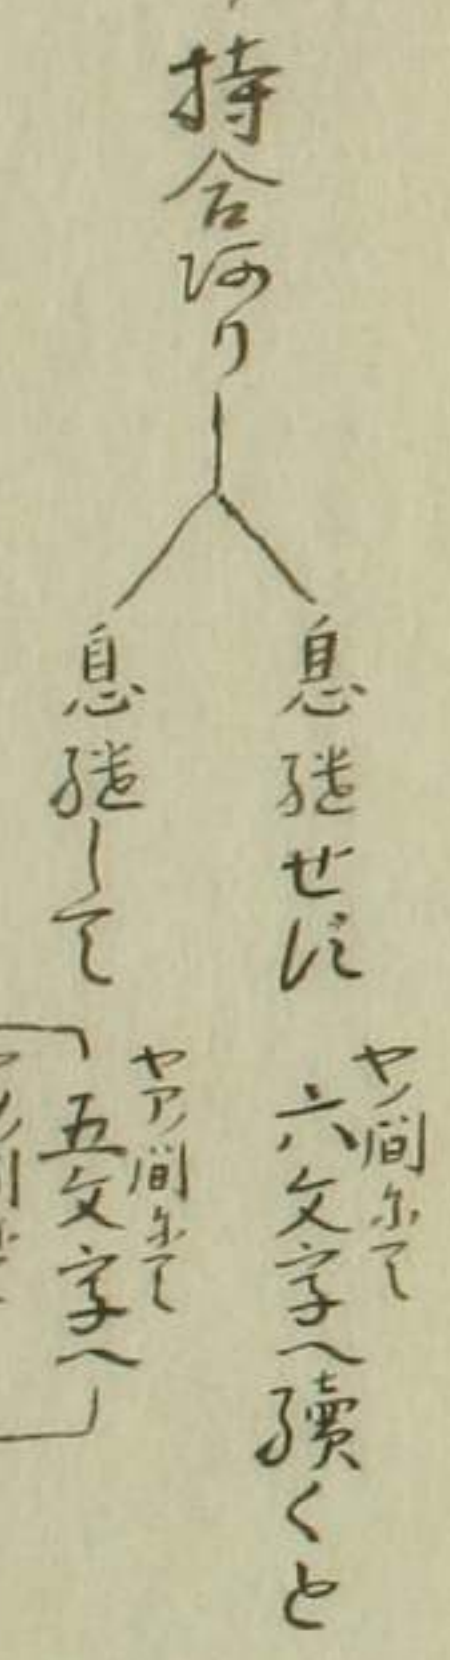 持合あり
息継せず
ヤノ間にて
六文字へ續くと
息継して
ヤアノ間にて
五文字へ